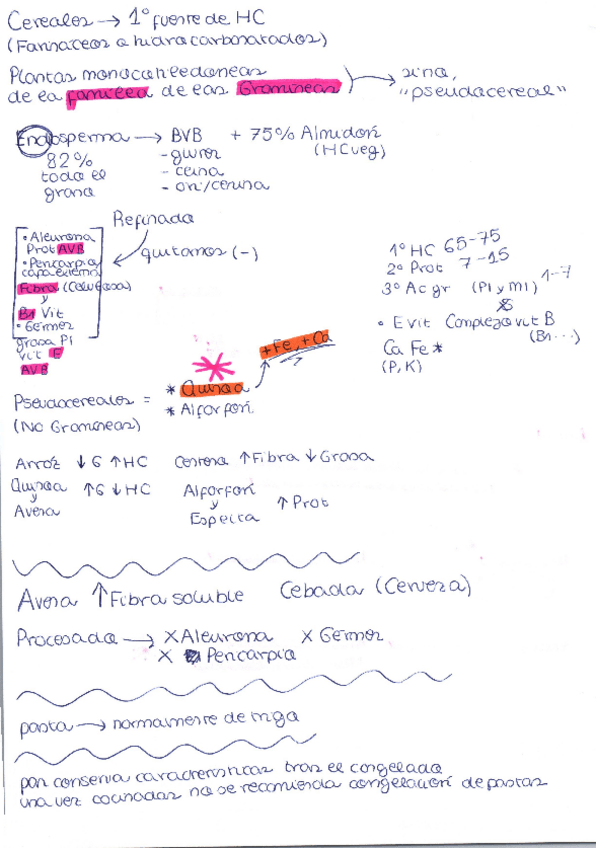 Cereales → 1º fuente de HC
(Farináceos o hidrocarbonatados)
Plantas monocotiledóneas
de la familia de las Gramíneas → sino, "pseudocereal"
Endosperma → BVB + 75% Almidón
82% - gluten (HC veg)
todo el - ceína
grano - orizenina
Refinado
quitamos (-)
• Aleurona
Prot AVB
• Pericarpio
capa externa
Fibra (Celulosa)
y
B1 Vit
• Germen
grasa PI
vit E
AVB
1º HC 65-75
2º Prot 7-15
3º Ac gr (PI y MI) 1-7
• E vit Complejo vit B
(B1...)
Ca Fe *
(P, K)
+Fe, +Ca
Pseudocereales = * Quinoa
(No Gramíneas) * Alforfón
Arroz ↓G ↑HC Centeno ↑Fibra ↓Grasa
Quinoa y Avena ↑G ↓HC
Alforfón y Espelta ↑Prot
Avena ↑Fibra soluble Cebada (Cerveza)
Procesado → X Aleurona X Germen
X Pericarpio
pasta → normalmente de trigo
pan conserva características tras el congelado
una vez cocinadas no se recomienda congelación de pastas